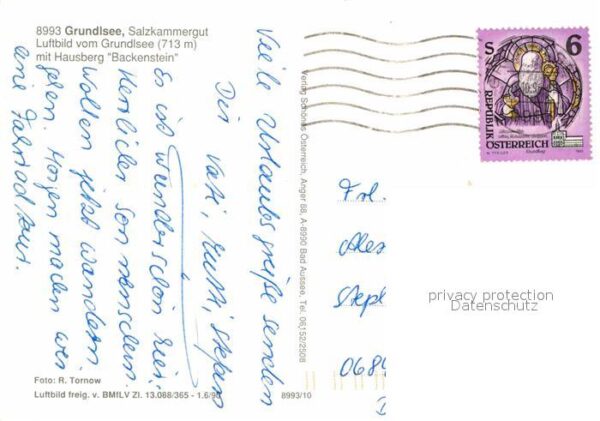 8993 Grundlsee, Salzkammergut
Luftbild vom Grundlsee (713 m)
mit Hausberg "Backenstein"
Viele Urlaubsgrüße senden
Dir Vati, Mutti, Stefan
Es ist wunderschön hier.
Herrlicher Sonnenschein.
wollen jetzt wandern
gehen. Morgen machen wir
eine Fahrradtour.
Foto: R. Tornow
Luftbild freig. v. BMfLV Zl. 13.088/365 - 1.6/90
8993/10
Verlag Schönes Österreich, Anger 68, A-8990 Bad Aussee, Tel. 06152/2508
S 6
REPUBLIK
ÖSTERREICH
Frl.
Ales
Steph
privacy protection
Datenschutz